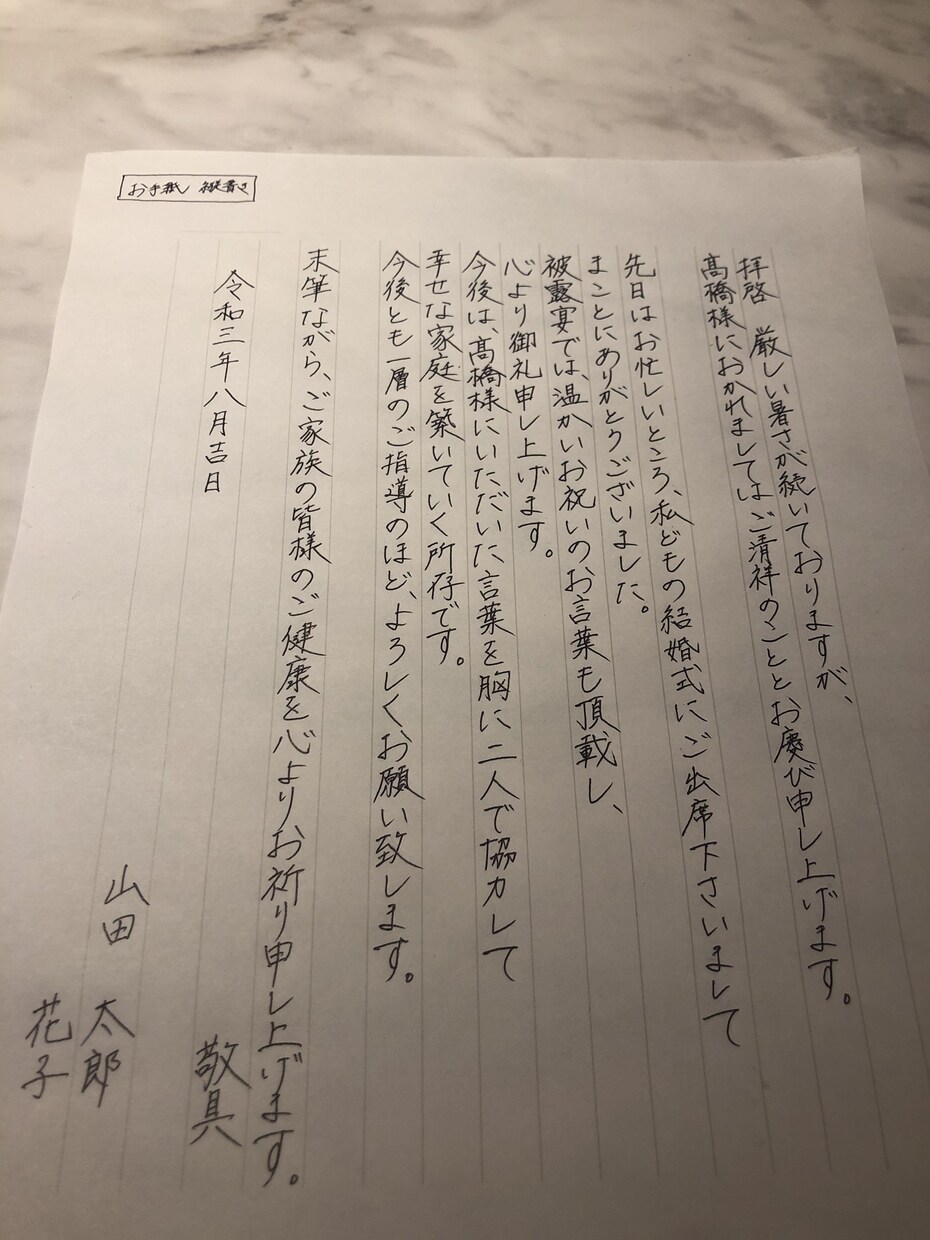 お手紙 縦書き
拝啓 厳しい暑さが続いておりますが、
髙橋様におかれましてはご清祥のこととお慶び申し上げます。
先日はお忙しいところ、私どもの結婚式にご出席下さいまして
まことにありがとうございました。
被露宴では、温かいお祝いのお言葉も頂載し、
心より御礼申し上げます。
今後は、髙橋様にいただいた言葉を胸に二人で協力して
幸せな家庭を築いていく所存です。
今後とも一層のご指導のほど、よろしくお願い致します。
末筆ながら、ご家族の皆様のご健康を心よりお祈り申し上げます。
敬具
令和三年八月吉日
山田 太郎
花子